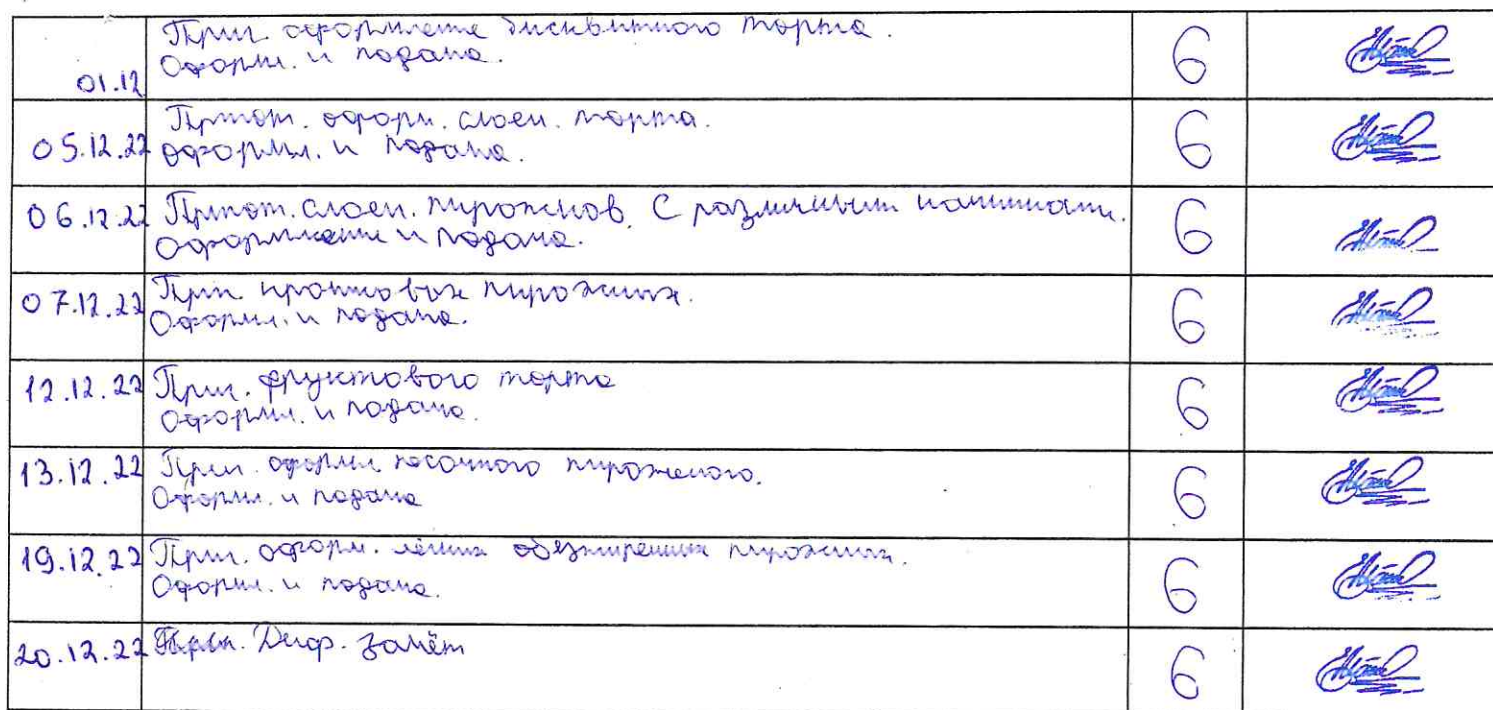 Приг. оформление бисквитного торта. 6
Оформ. и подача.
01.12
Пригот. оформ. слоен. торта. 6
05.12.22 оформл. и подача.
06.12.22 Пригот. слоен. пирожнов. С различными начинками. 6
Оформление и подача.
07.12.22 Приг. крошковых пирожных. 6
Оформл. и подача.
12.12.22 Приг. фруктового торта 6
Оформл. и подача.
13.12.22 Приг. оформл. песочного пирожного. 6
Оформл. и подача
19.12.22 Приг. оформ. лёгких обезжиренных пирожных. 6
Оформл. и подача.
20.12.22 Диф. зачёт 6